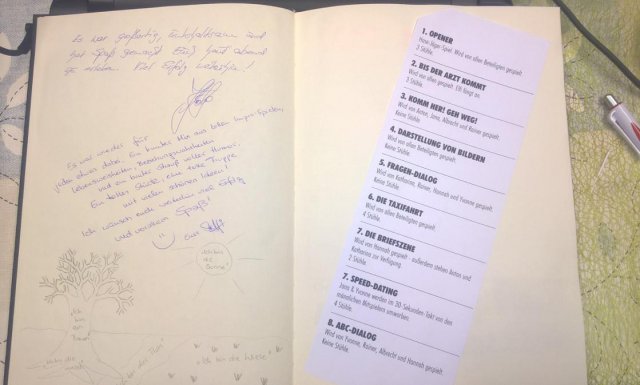 Es war großartig, Einfallsreich und
hat Spaß gemacht Euch heut abend
zu erleben. Viel Erfolg weiterhin!
Es war wieder für
jede etwas dabei. Ein bunter Mix aus tollen Impro-Spielen,
Lebensweisheiten, Beziehungswahrheiten
und ein bunter Strauß voller Humor.
Ein tolles Stück, eine tolle Truppe
mit vielen schönen Ideen!
Ich wünsch euch weiterhin viel Erfolg
und vor allem Spaß!
Ich bin
die
Sonne!
Ich
bin
ein
Baum
Ich bin die Wiese!
1. OPENER
Wird von allen Beteiligten gespielt
3 Stühle.
2. BIS DER ARZT KOMMT
Wird von allen gespielt. Elfi fängt an.
3 Stühle.
3. KOMM HER! GEH WEG!
Wird von Anton, Jana, Albrecht und Rainer gespielt.
Keine Stühle.
4. DARSTELLUNG VON BILDERN
Wird von allen Beteiligten gespielt
Keine Stühle.
5. FRAGEN-DIALOG
Wird von Katharina, Rainer, Hannah und Yvonne gespielt.
Keine Stühle.
6. DIE TAXIFAHRT
Wird von allen Beteiligten gespielt
4 Stühle.
7. DIE BRIEFSZENE
Wird von Hannah gespielt - außerdem stehen Anton und
Katharina zur Verfügung.
2 Stühle.
7. SPEED-DATING
Jana & Yvonne werden im 30-Sekunden-Takt von den
männlichen Mitspielern umworben.
4 Stühle.
8. ABC-DIALOG
Wird von Yvonne, Rainer, Albrecht und Hannah gespielt
Keine Stühle.